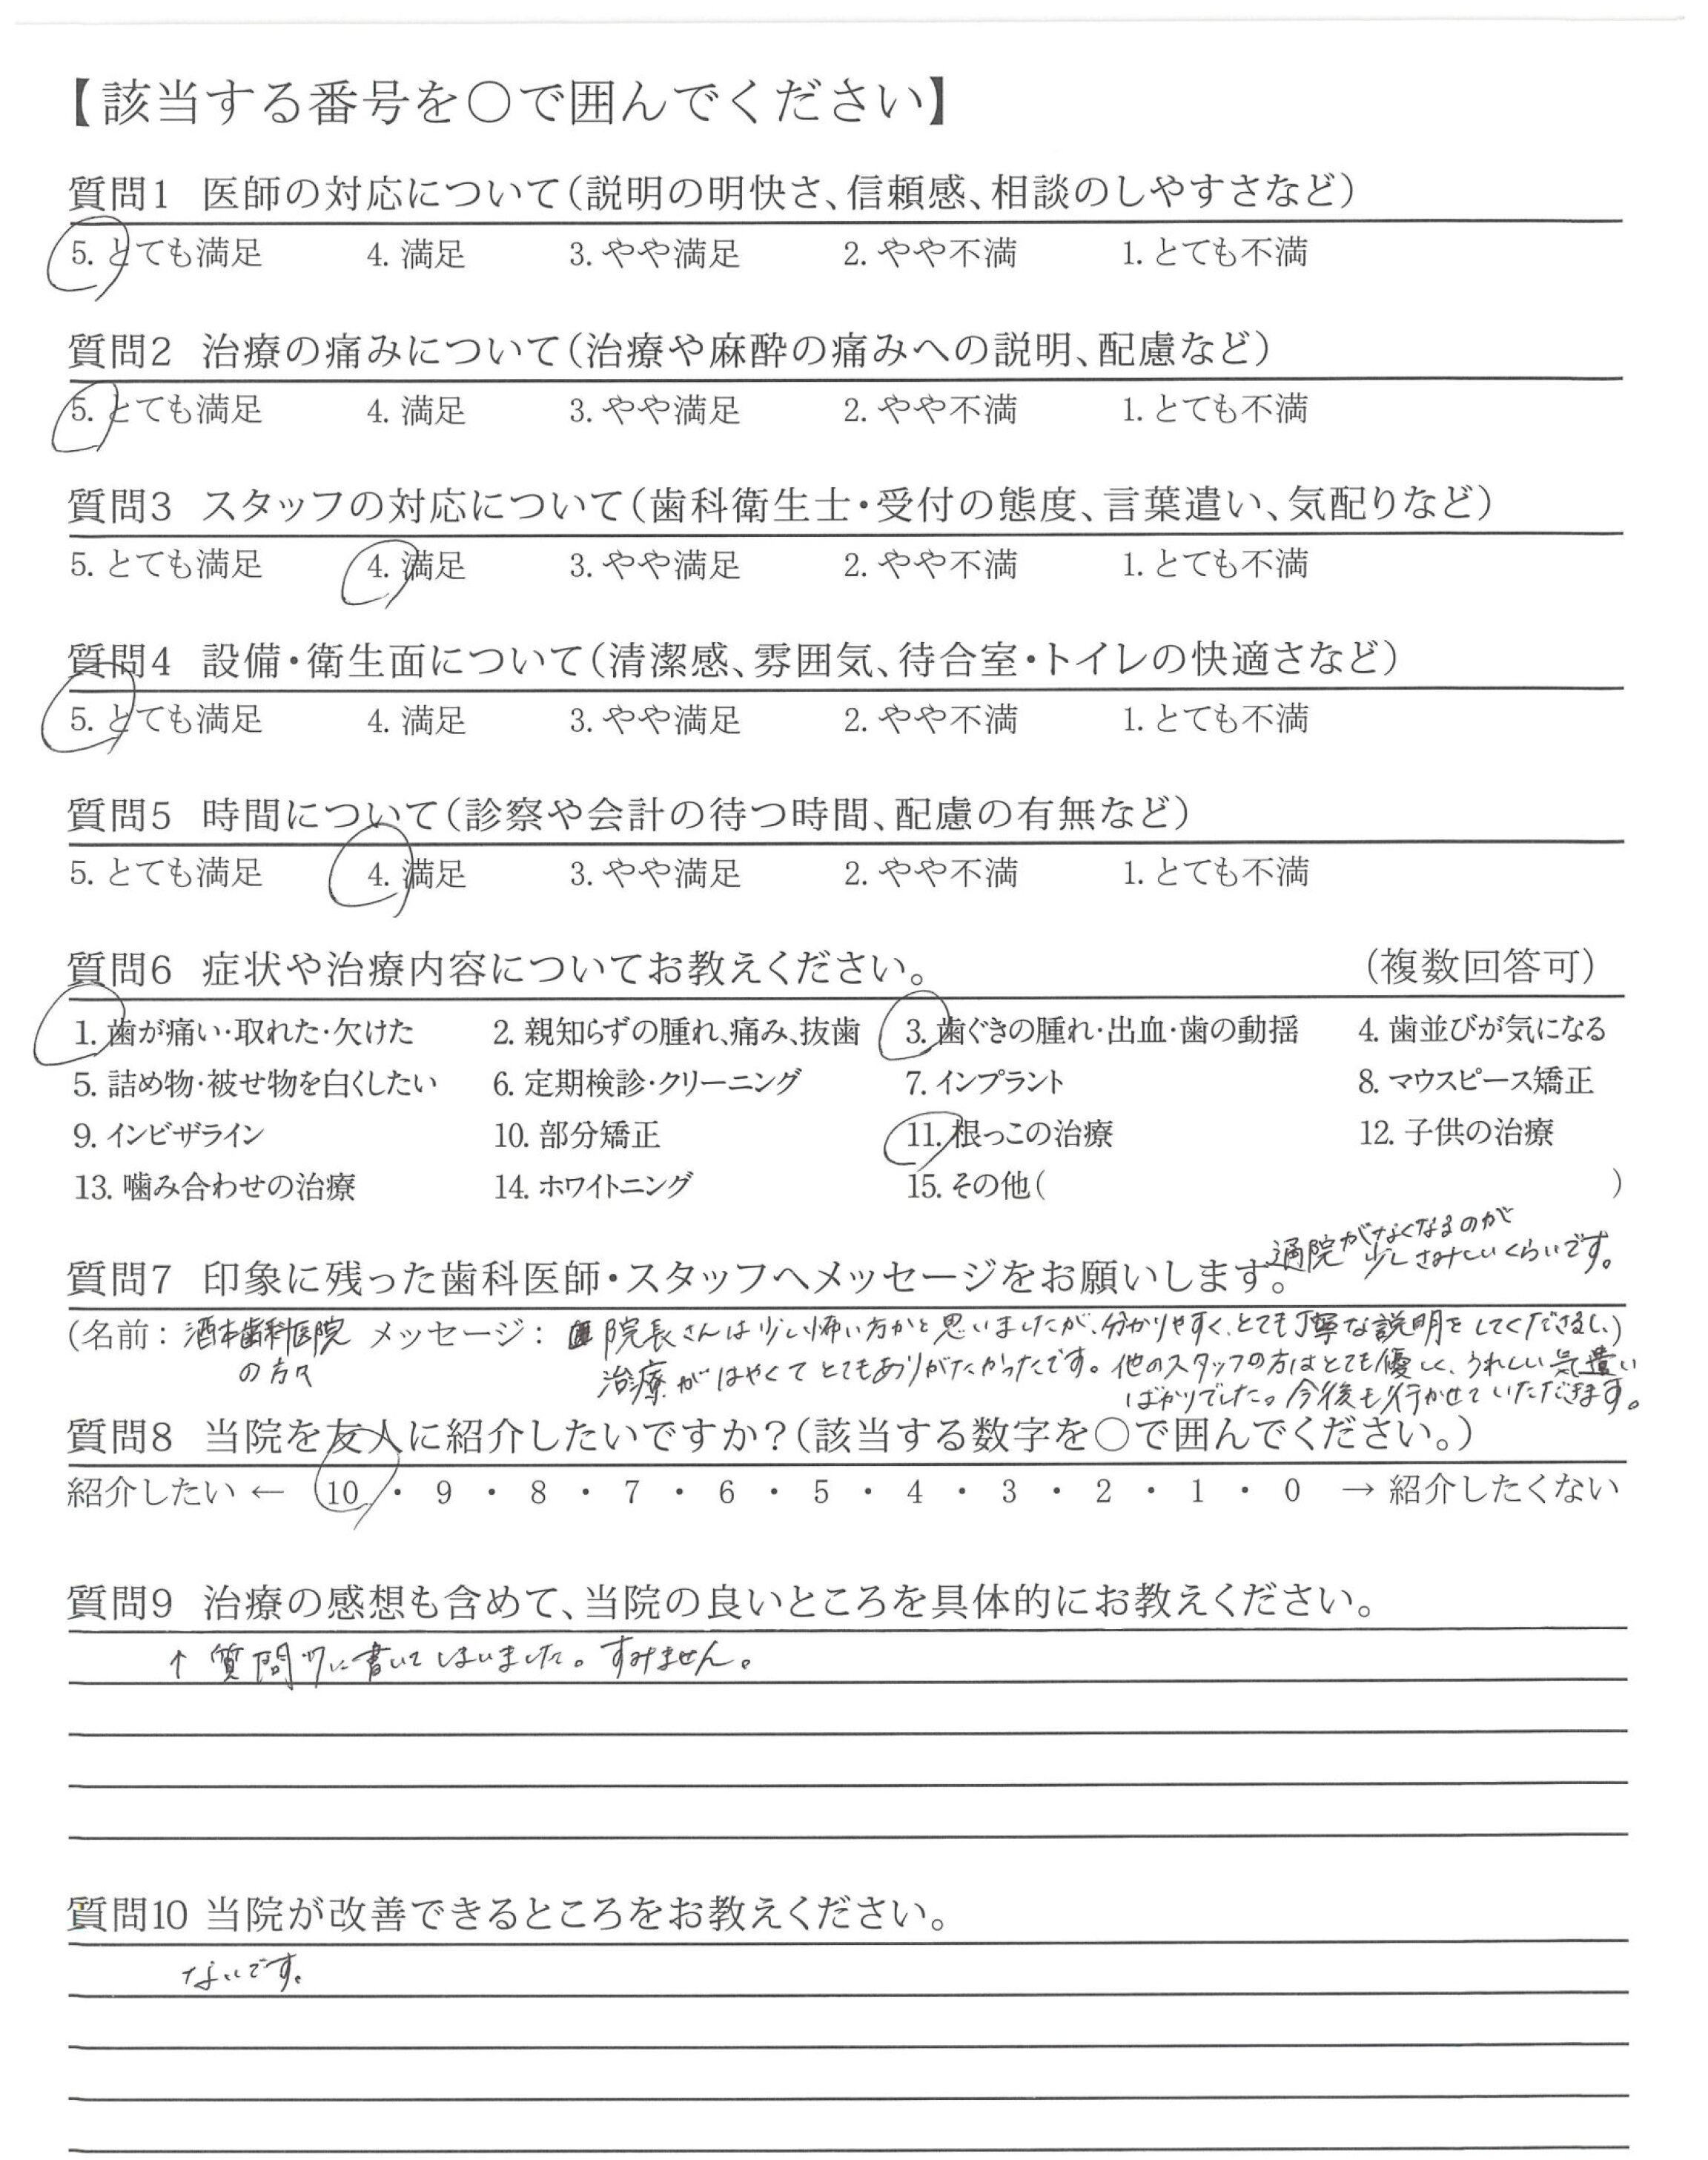 【該当する番号を○で囲んでください】
質問1 医師の対応について(説明の明快さ、信頼感、相談のしやすさなど)
5. とても満足 4. 満足 3. やや満足 2. やや不満 1. とても不満
質問2 治療の痛みについて(治療や麻酔の痛みへの説明、配慮など)
5. とても満足 4. 満足 3. やや満足 2. やや不満 1. とても不満
質問3 スタッフの対応について(歯科衛生士・受付の態度、言葉遣い、気配りなど)
5. とても満足 4. 満足 3. やや満足 2. やや不満 1. とても不満
質問4 設備・衛生面について(清潔感、雰囲気、待合室・トイレの快適さなど)
5. とても満足 4. 満足 3. やや満足 2. やや不満 1. とても不満
質問5 時間について(診察や会計の待つ時間、配慮の有無など)
5. とても満足 4. 満足 3. やや満足 2. やや不満 1. とても不満
質問6 症状や治療内容についてお教えください。 (複数回答可)
1. 歯が痛い・取れた・欠けた 2. 親知らずの腫れ、痛み、抜歯 3. 歯ぐきの腫れ・出血・歯の動揺 4. 歯並びが気になる
5. 詰め物・被せ物を白くしたい 6. 定期検診・クリーニング 7. インプラント 8. マウスピース矯正
9. インビザライン 10. 部分矯正 11. 根っこの治療 12. 子供の治療
13. 噛み合わせの治療 14. ホワイトニング 15. その他( )
質問7 印象に残った歯科医師・スタッフへメッセージをお願いします。
通院がなくなるのが
少しさみしいくらいです。
(名前: 酒本歯科医院 メッセージ: 院長さんは少し怖い方かと思いましたが、分かりやすく、とても丁寧な説明をしてくださるし、)
の方々 治療がはやくてとてもありがたかったです。他のスタッフの方はとても優しく、うれしい気遣い
ばかりでした。今後も行かせていただきます。
質問8 当院を友人に紹介したいですか?(該当する数字を○で囲んでください。)
紹介したい ← 10 ・ 9 ・ 8 ・ 7 ・ 6 ・ 5 ・ 4 ・ 3 ・ 2 ・ 1 ・ 0 → 紹介したくない
質問9 治療の感想も含めて、当院の良いところを具体的にお教えください。
↑ 質問7に書いてしまいました。すみません。
質問10 当院が改善できるところをお教えください。
ないです。